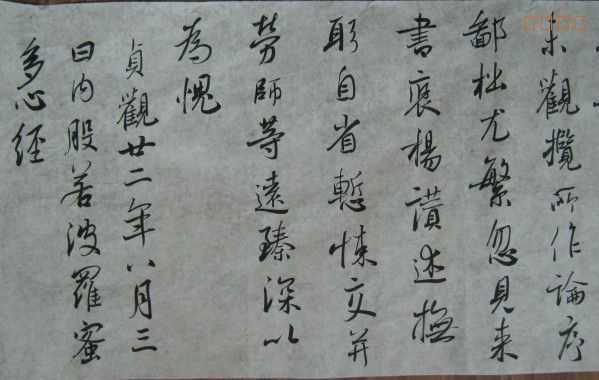 未觀攬所作論序
鄙拙尤繁忽見来
書褒揚讃述撫
躬自省慙悚交并
勞師等遠臻深以
為愧
貞觀廿二年八月三
日内般若波羅蜜
多心經